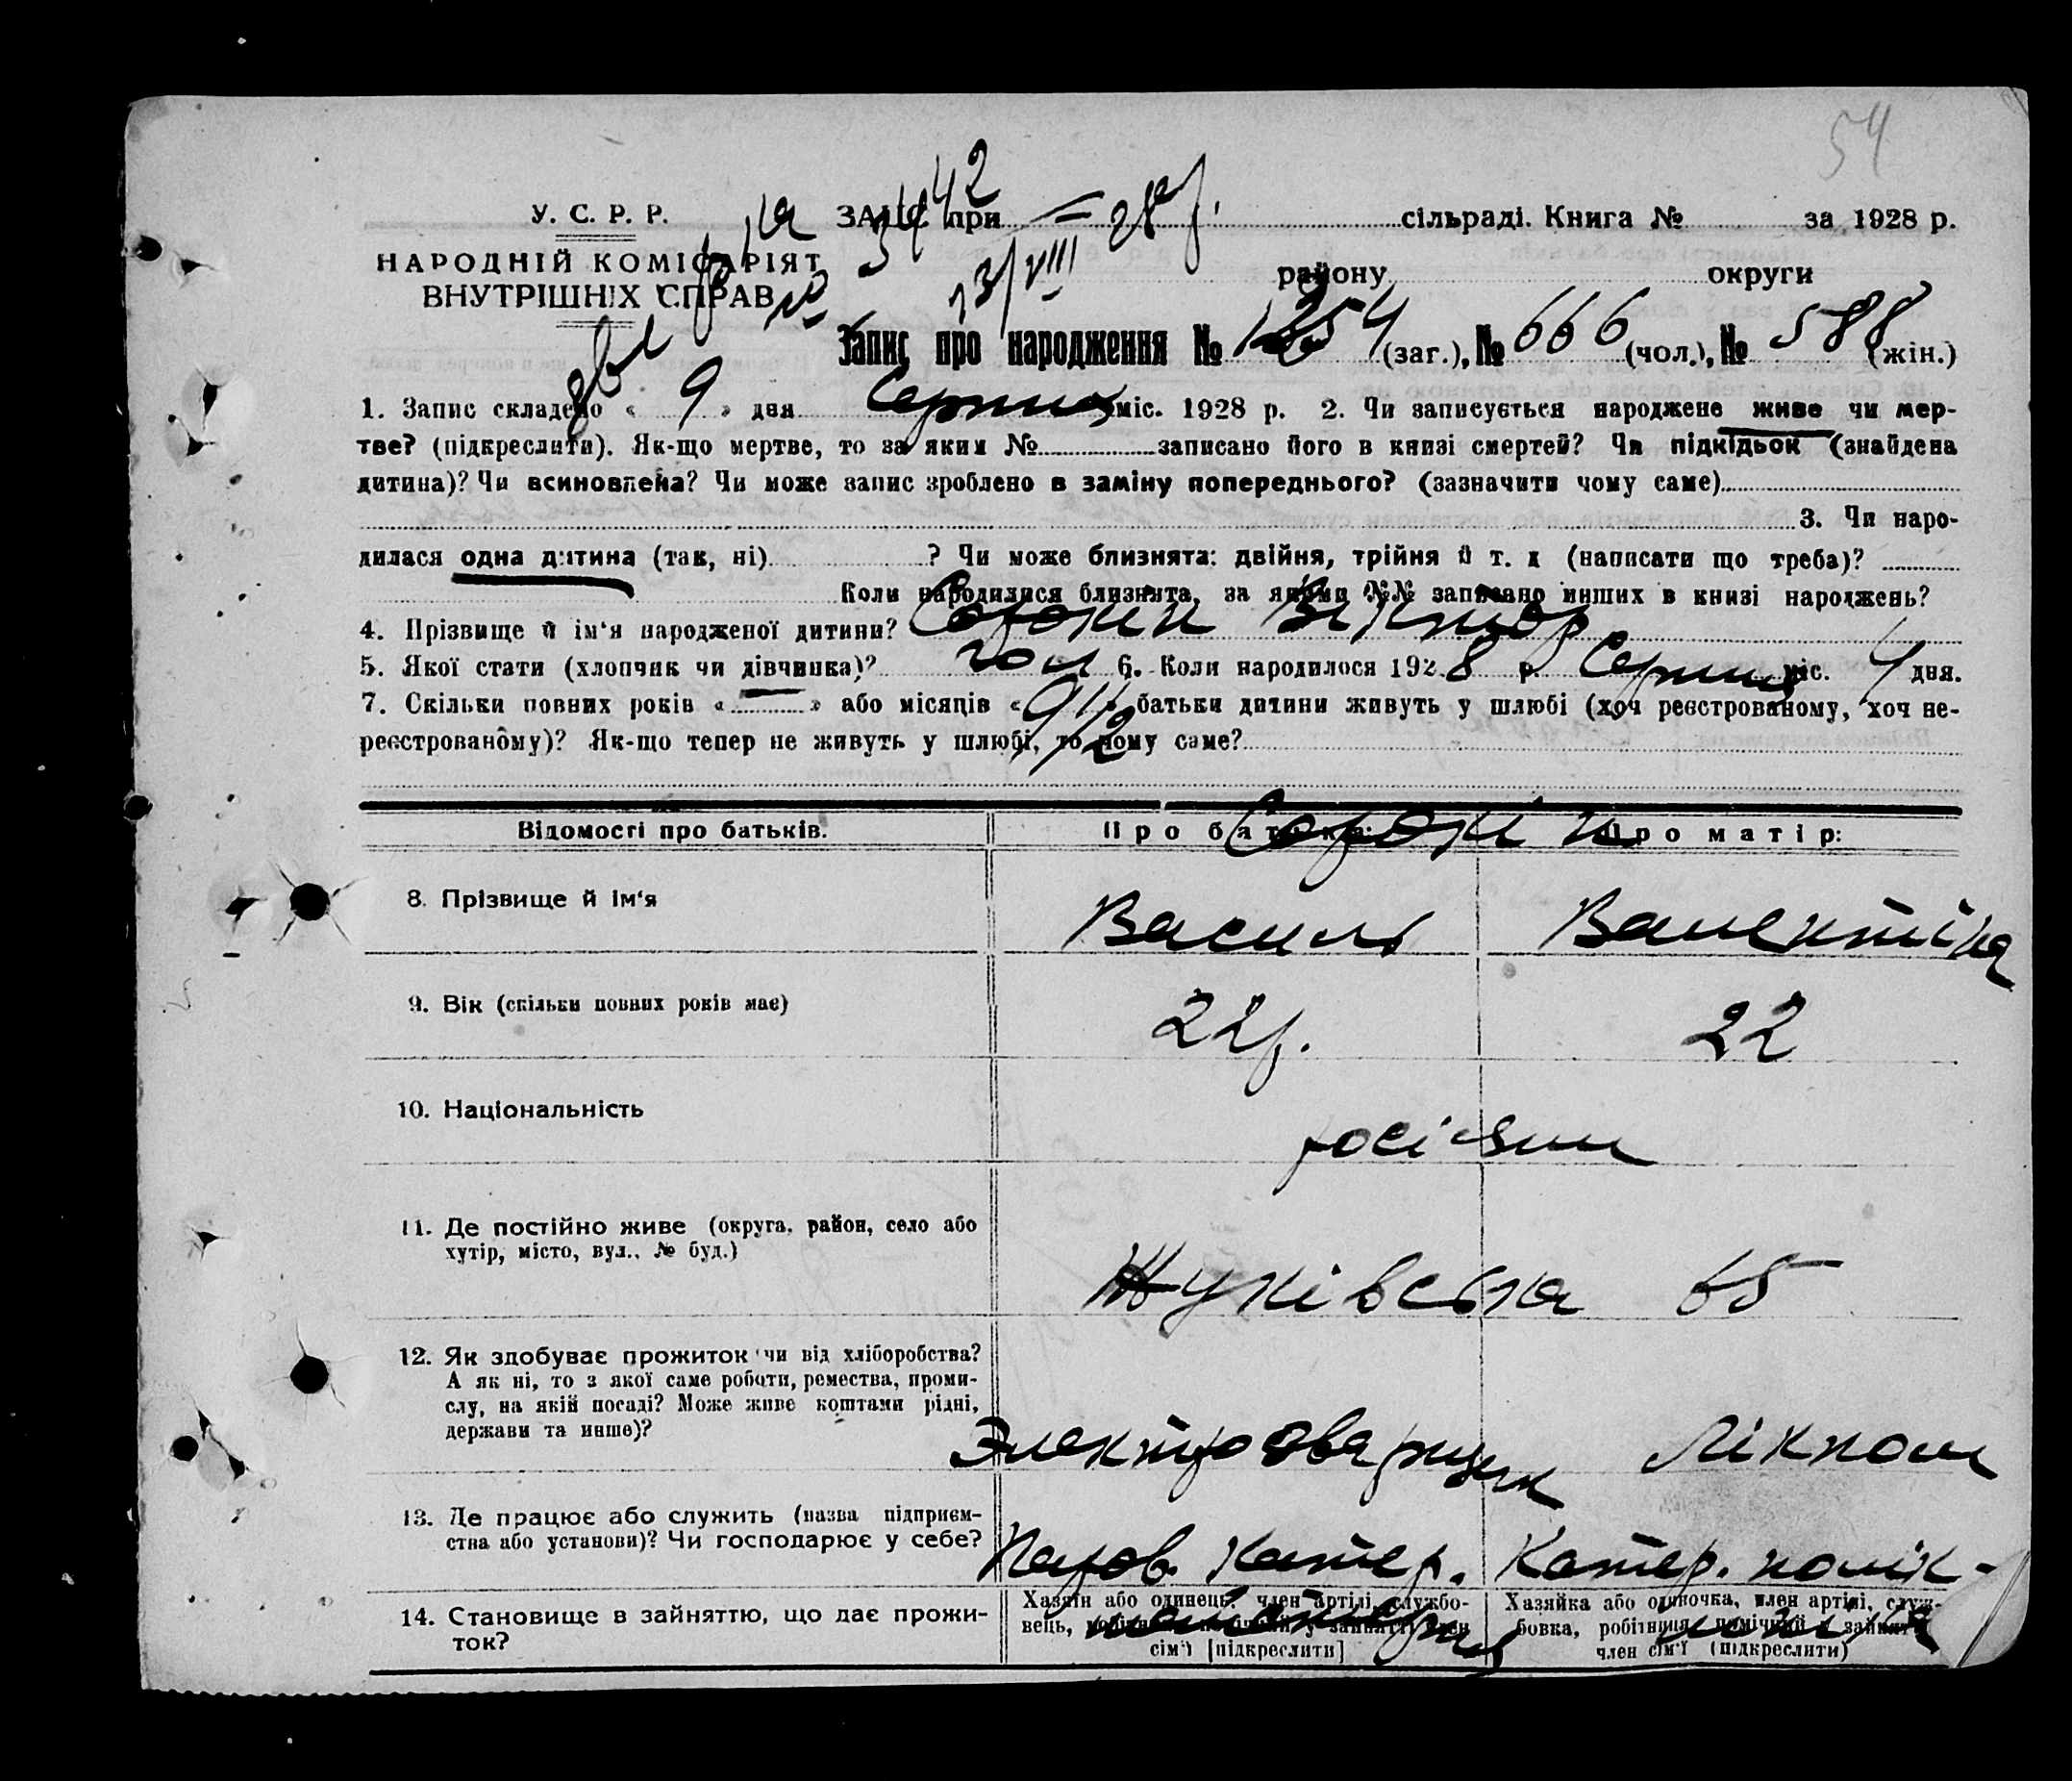 54
У. С. Р. Р.
НАРОДНІЙ КОМІСАРІЯТ
ВНУТРІШНІХ СПРАВ
3442
13/VIII
ЗАГС при сільраді. Книга № за 1928 р.
району округи
Запис про народження № 1254 (заг.), № 666 (чол.), № 588 (жін.)
1. Запис складено « 9 » дня Серпня міс. 1928 р. 2. Чи записується народжене живе чи мер-
тве? (підкреслити). Як-що мертве, то за яким № записано його в книзі смертей? Чи підкідьок (знайдена
дитина)? Чи всиновлена? Чи може запис зроблено в заміну попереднього? (зазначити чому саме)
3. Чи наро-
дилася одна дитина (так, ні) ? Чи може близнята: двійня, трійня й т. д (написати що треба)?
Коли народилися близнята, за якими №№ записано инших в книзі народжень?
4. Прізвище й ім'я народженої дитини? Сорокин Віктор
5. Якої стати (хлопчик чи дівчинка)? чол 6. Коли народилося 1928 р. Серпня міс. 4 дня.
7. Скільки повних років « — » або місяців « 9 1/2 » батьки дитини живуть у шлюбі (хоч реєстрованому, хоч не-
реєстрованому)? Як-що тепер не живуть у шлюбі, то чому саме?
Відомості про батьків. Про батька: Про матір:
Сорокін
8. Прізвище й ім'я Василь Валентіна
9. Вік (скільки повних років має) 22р. 22
10. Національність росіяни
11. Де постійно живе (округа, район, село або
хутір, місто, вул., № буд.) Жуківська 65
12. Як здобуває прожиток чи від хліборобства?
А як ні, то з якої саме роботи, ремества, проми-
слу, на якій посаді? Може живе коштами рідні,
держави та инше)? Электросварщик Лікпом
13. Де працює або служить (назва підприєм-
ства або установи)? Чи господарює у себе? Паров. Катер. Катер. полік-
14. Становище в зайняттю, що дає прожи-
ток?
Хазяїн або одинець, член артілі, службо-
вець, робітник, помічний у зайнятті член
сім'ї [підкреслити]
Хазяйка або одиночка, член артілі, служ-
бовка, робітниця, помічний у зайнятті
член сім'ї (підкреслити)